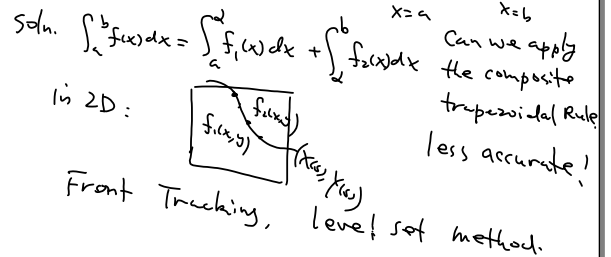 Soln. ∫_a^b f(x)dx = ∫_a^α f₁(x)dx + ∫_α^b f₂(x)dx
x=a x=b
Can we apply
the composite
trapezoidal Rule
less accurate!
in 2D:
f₁(x,y)
f₂(x,y)
(X(s), Y(s))
Front Tracking, level set method.